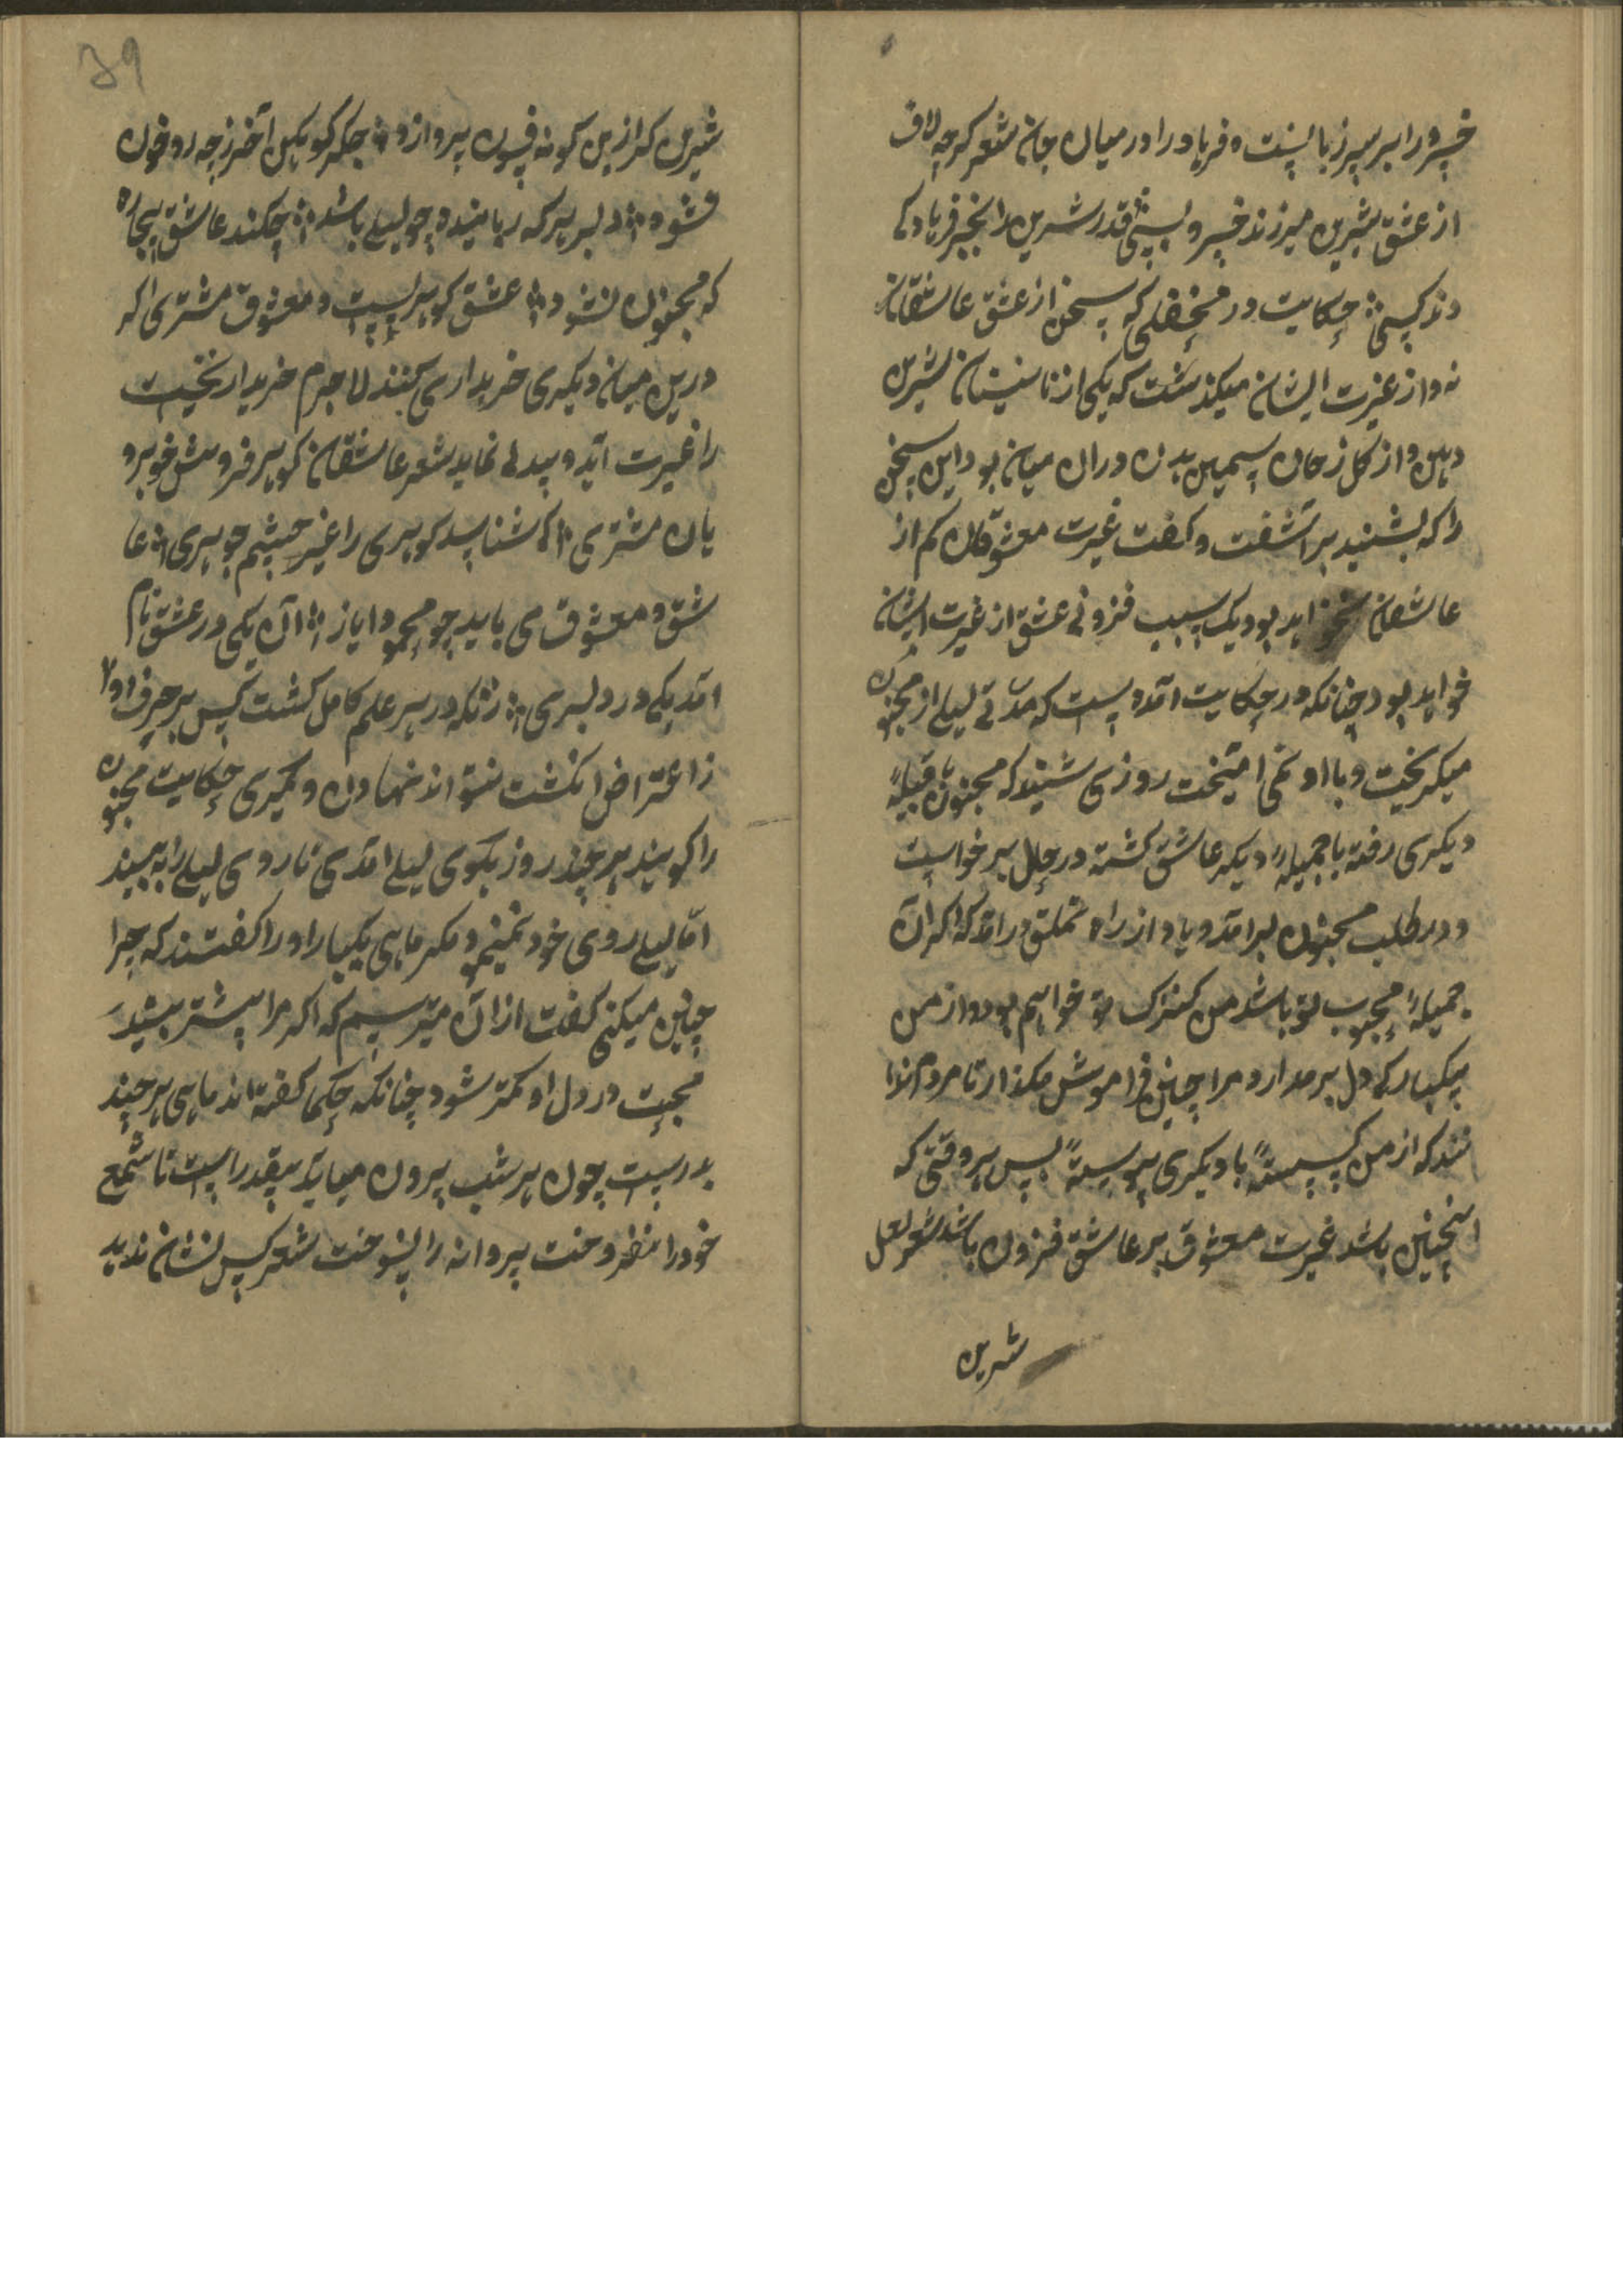 خسرو را بر سر زبانست و فرهاد را در میان جان شعر کرچه لاف
از عشق شیرین میزند خسرو بسی قدر شیرین را بجز فرهاد کی
داند کسی حکایت در محفلی که سخن از عشق عاشقان
نه و از غیرت ایشان میکذشت که یکی از نازنینان شیرین
دهن و از کل رخان سیمین بدن دران میان بود این سخن
را که بشنید برآشفت و کفت غیرت معشوقان کم از
عاشقان نخواهد بود یک سبب فزونی عشق از غیرت ایشان
خواهد بود چنانکه در حکایت آمده است که مدتی لیلی از مجنون
میکریخت و با او نمی آمیخت روزی شنید که مجنون با قبیلهٔ
دیکری رفته با جمیلهٔ دیکر عاشق کشته در حال برخواست
و در طلب مجنون برآمد و باو از راه تملق درآمد که اکر آن
جمیلهٔ محبوب تو باشد من کنیزک تو خواهم بود و از من
بیکبارکی دل برمدار و مرا چنین فراموش مکذار تا مردم ندا
نند که از من کسستهٔ با دیکری پیوستهٔ پس هر وقتی که
اینچنین باشد غیرت معشوق بر عاشق فزون باشد شعر لعل
شیرین
39
شیرین کر ازین کونه فسون پردازد جکر کوهکن آخر ز چه رو خون
نشود دلبر هر که رباینده چو لیلی باشد چکند عاشق بیچاره
که مجنون نشود عشق کوهریست و معشوق مشتری اکر
درین میان دیکری خریداری کند لاجرم خریدار نخست
را غیرت آید و بیدلی نماید شعر عاشقان کوهر فروش خوبرو
یان مشتری کی شناسد کوهری را غیر چشم جوهری عا
شق و معشوق می باید چو محمود ایاز آن یکی در عشق نام
آمد یکی در دلبری زانکه در هر علم کامل کشت کس بر حرف او
ز اعتراض انکشت نتواند نهادن دیکری حکایت مجنون
را کویند هر چند روز بکوی لیلی آمدی تا روی لیلی را به بیند
اما لیلی روی خود ننمودی مکر ماهی یکبار او را کفتند که چرا
چنین میکنی کفت ازان میترسم که اکر مرا بیشتر بیند
محبت در دل او کمتر شود چنانکه حکما کفته اند ماهی هر چند
بدرست چون هر شب بیرون میاید بیقدر است تا شمع
خود را نفروخت پروانه را نسوخت شعر کس نشان ندید